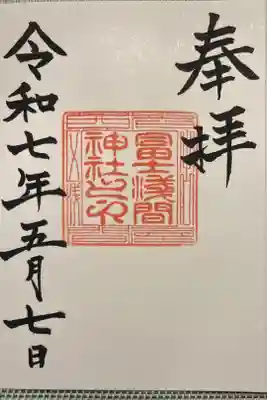 奉拝
冨士浅間
神社之印
令和七年五月七日